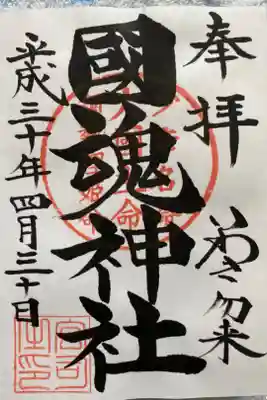 奉拝
いわき勿来
國魂神社
平成三十年四月三十日